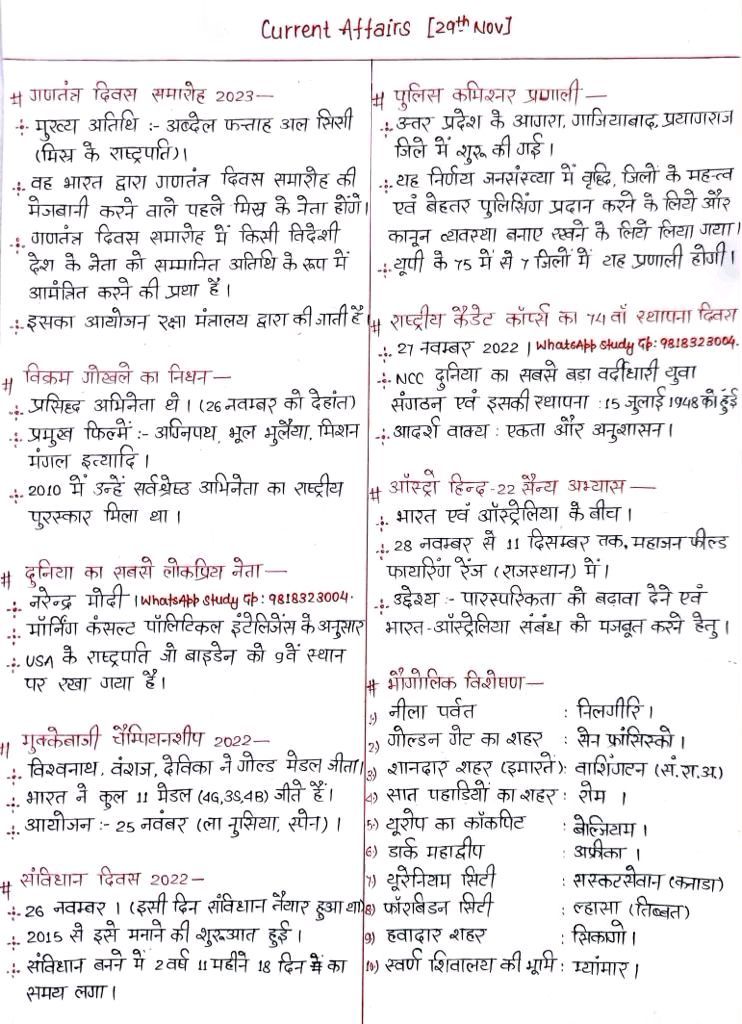 Current Affairs [29th Nov]
# गणतंत्र दिवस समारोह 2023—
मुख्य अतिथि :- अब्देल फत्ताह अल सिसी
(मिस्र के राष्ट्रपति)।
वह भारत द्वारा गणतंत्र दिवस समारोह की
मेजबानी करने वाले पहले मिस्र के नेता होंगे।
गणतंत्र दिवस समारोह में किसी विदेशी
देश के नेता को सम्मानित अतिथि के रूप में
आमंत्रित करने की प्रथा है।
इसका आयोजन रक्षा मंत्रालय द्वारा की जाती है।
# विक्रम गोखले का निधन—
प्रसिद्ध अभिनेता थे। (26 नवम्बर को देहांत)
प्रमुख फिल्में :- अग्निपथ, भूल भुलैया, मिशन
मंगल इत्यादि।
2010 में उन्हें सर्वश्रेष्ठ अभिनेता का राष्ट्रीय
पुरस्कार मिला था।
# दुनिया का सबसे लोकप्रिय नेता—
नरेन्द्र मोदी। WhatsApp Study Gp: 9818323004.
मॉर्निंग कंसल्ट पॉलिटिकल इंटेलिजेंस के अनुसार
USA के राष्ट्रपति जो बाइडेन को 9वें स्थान
पर रखा गया है।
# मुक्केबाजी चैम्पियनशीप 2022—
विश्वनाथ, वंशज, देविका ने गोल्ड मेडल जीता।
भारत ने कुल 11 मेडल (4G,3S,4B) जीते हैं।
आयोजन :- 25 नवंबर (ला नुसिया, स्पेन)।
# संविधान दिवस 2022—
26 नवम्बर। (इसी दिन संविधान तैयार हुआ था)
2015 से इसे मनाने की शुरूआत हुई।
संविधान बनने में 2 वर्ष 11 महीने 18 दिन का
समय लगा।
# पुलिस कमिश्नर प्रणाली—
उत्तर प्रदेश के आगरा, गाजियाबाद, प्रयागराज
जिले में शुरू की गई।
यह निर्णय जनसंख्या में वृद्धि, जिलों के महत्व
एवं बेहतर पुलिसिंग प्रदान करने के लिये और
कानून व्यवस्था बनाए रखने के लिये लिया गया।
यूपी के 75 में से 7 जिलों में यह प्रणाली होगी।
# राष्ट्रीय कैडेट कॉर्प्स का 74 वाँ स्थापना दिवस
27 नवम्बर 2022 । WhatsApp Study Gp: 9818323004.
NCC दुनिया का सबसे बडा वर्दीधारी युवा
संगठन एवं इसकी स्थापना : 15 जुलाई 1948 को हुई
आदर्श वाक्य : एकता और अनुशासन।
# ऑस्ट्रो हिन्द-22 सैन्य अभ्यास—
भारत एवं ऑस्ट्रेलिया के बीच।
28 नवम्बर से 11 दिसम्बर तक, महाजन फील्ड
फायरिंग रेंज (राजस्थान) में।
उद्देश्य :- पारस्परिकता को बढावा देने एवं
भारत-ऑस्ट्रेलिया संबंध को मजबूत करने हेतु।
# भौगोलिक विशेषण—
1) नीला पर्वत : निलगीरि।
2) गोल्डन गेट का शहर : सेन फ्रांसिस्को।
3) शानदार शहर (इमारतें) : वाशिंगटन (सं.रा.अ)
4) सात पहाडियों का शहर : रोम ।
5) यूरोप का कॉकपिट : बेल्जियम।
6) डार्क महाद्वीप : अफ्रीका।
7) यूरेनियम सिटी : सस्कटसेवान (कनाडा)
8) फॉरबिडन सिटी : ल्हासा (तिब्बत)
9) हवादार शहर : सिकागो।
10) स्वर्ण शिवालय की भूमि : म्यांमार।